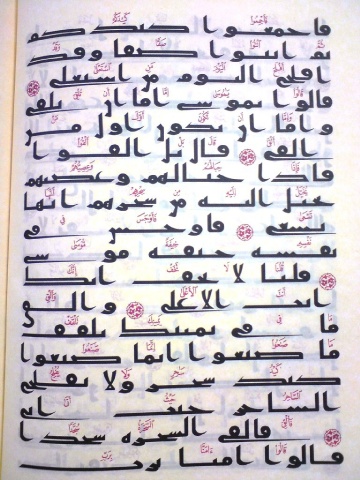 فاجمعوا كيدكم
ثم ائتوا صفا وقد
افلح اليوم من استعلى
قالوا يموسى اما ان تلقى
واما ان نكون اول من
القى قال بل القوا
فاذا حبالهم وعصيهم
يخيل اليه من سحرهم انها
تسعى فاوجس في
نفسه خيفة موسى
قلنا لا تخف انك
انت الاعلى والق
ما في يمينك تلقف
ما صنعوا انما صنعوا
كيد سحر ولا يفلح
الساحر حيث اتى
فالقى السحرة سجدا
قالوا امنا برب